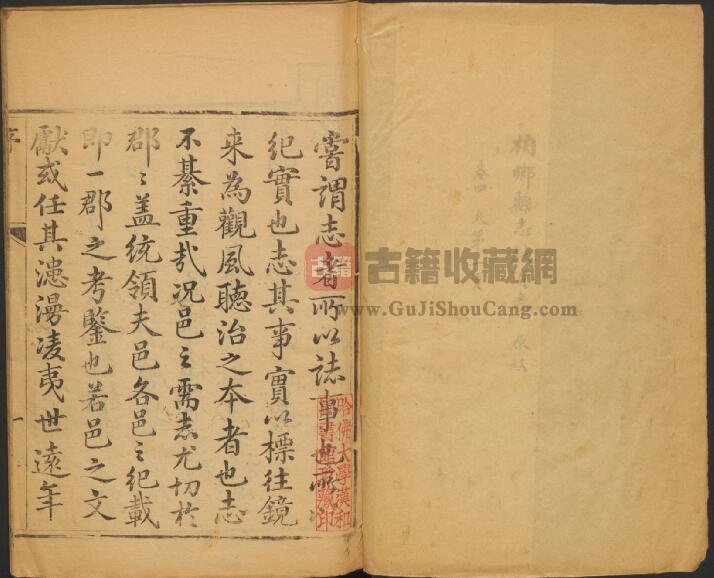 嘗謂志者所以誌事也所以
紀實也志其事實以標往鏡
来為觀風聽治之本者也志
不綦重㢤况邑之需志尤切於
郡〻盖統領夫邑各邑之紀載
即一郡之考鑒也若邑之文
獻或任其漶漫凌夷世遠年
序
一
哈佛大學漢和
圖書館珍藏印
柏鄉縣志
卷四
古籍
古籍收藏網
www.GuJiShouCang.com